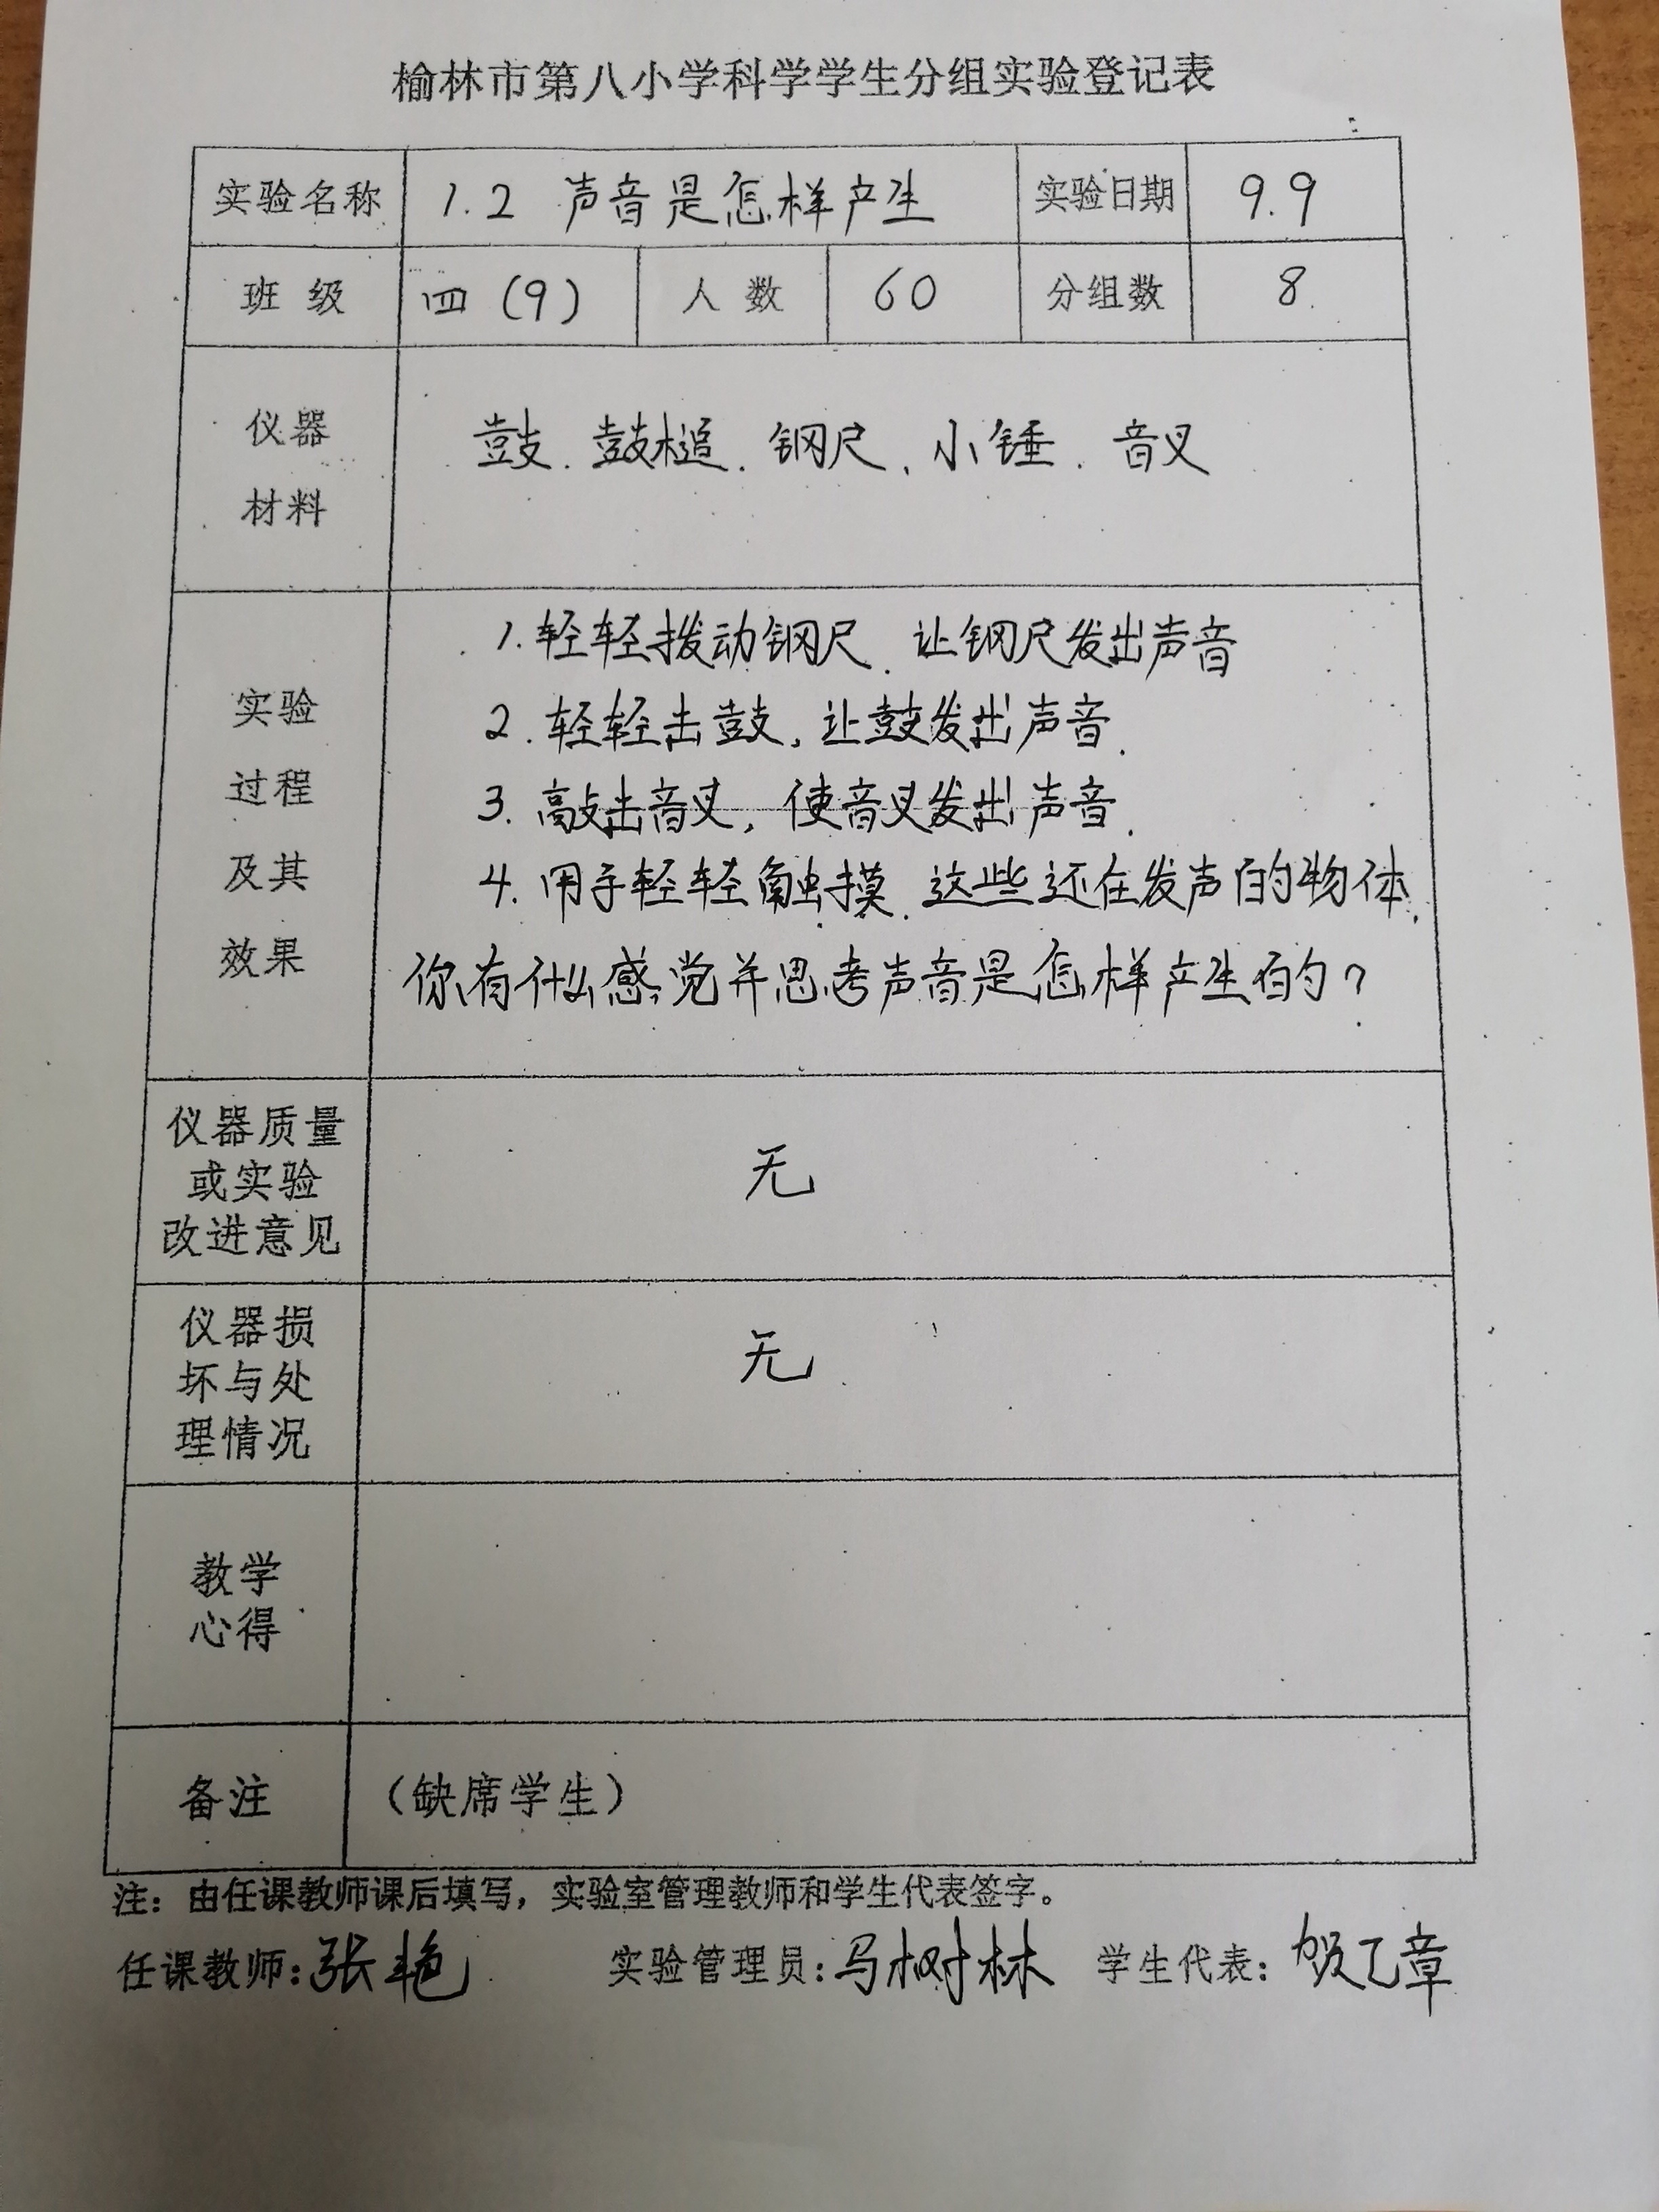 榆林市第八小学科学学生分组实验登记表
实验名称 1.2 声音是怎样产生 实验日期 9.9
班 级 四（9） 人 数 60 分组数 8
仪器
材料
鼓、鼓槌、钢尺、小锤、音叉
实验
过程
及其
效果
1.轻轻拨动钢尺、让钢尺发出声音
2.轻轻击鼓，让鼓发出声音.
3.敲击音叉，使音叉发出声音.
4.用手轻轻触摸、这些还在发声的物体，
你有什么感觉并思考声音是怎样产生的？
仪器质量
或实验
改进意见
无
仪器损
坏与处
理情况
无
教学
心得
备注 （缺席学生）
注：由任课教师课后填写，实验室管理教师和学生代表签字。
任课教师：张艳 实验管理员：马树林 学生代表：贺乙章